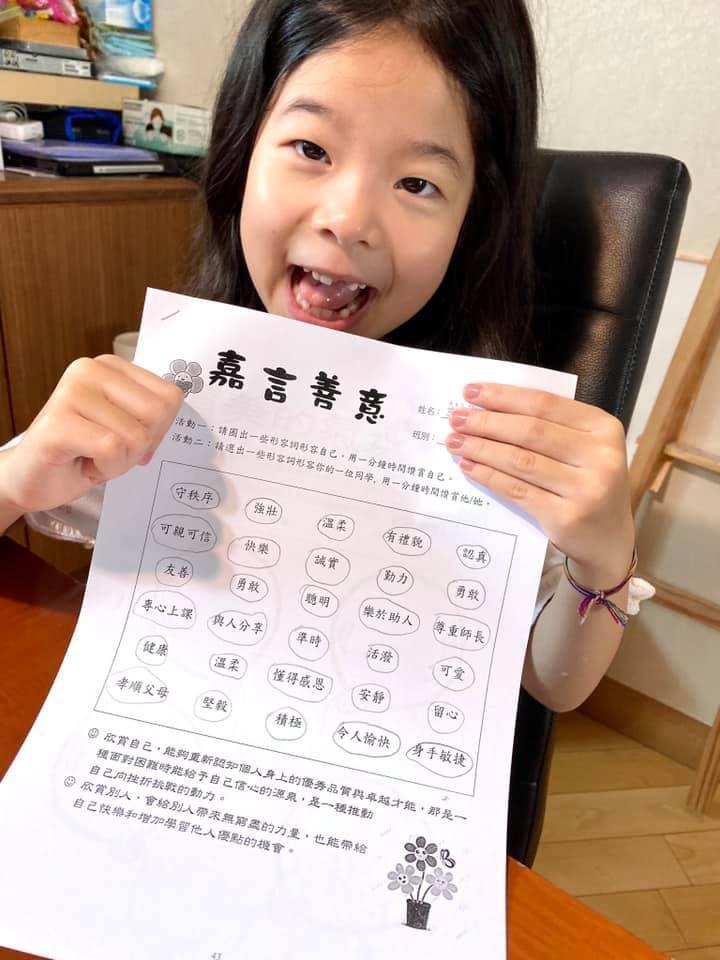 嘉言善意
姓名：
班別：
活動一：請圈出一些形容詞形容自己，用一分鐘時間讚賞自己。
活動二：請選出一些形容詞形容你的一位同學，用一分鐘時間讚賞他/她。
守秩序 強壯 溫柔 有禮貌 認真
可親可信 快樂 誠實 勤力 勇敢
友善 勇敢 聰明 樂於助人 尊重師長
專心上課 與人分享 準時 活潑 可愛
健康 溫柔 懂得感恩 安靜 留心
孝順父母 堅毅 積極 令人愉快 身手敏捷
欣賞自己，能夠重新認知個人身上的優秀品質與卓越才能，那是一
種面對困難時能給予自己信心的源泉，是一種推動
自己向挫折挑戰的動力。
欣賞別人，會給別人帶來無窮盡的力量，也能帶給
自己快樂和增加學習他人優點的機會。
43